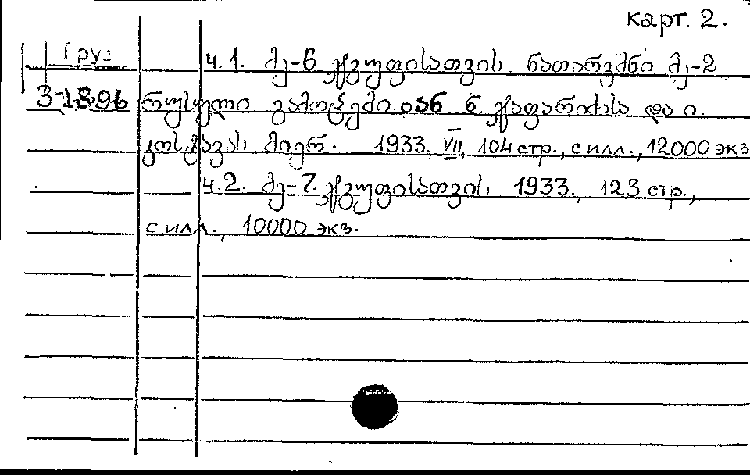 карт. 2.
Груз
ч.1. მე-6 ჯგუფისათვის ნათარგმნი მე-2
3-1896 რუსული გამოცემიდან ნ. ქაფარიძისა და ი.
მიერ. 1933. VII, 104 стр., с илл., 12000 экз
ч.2. მე-7 ჯგუფისათვის. 1933., 123 стр.,
с илл., 10000 экз.